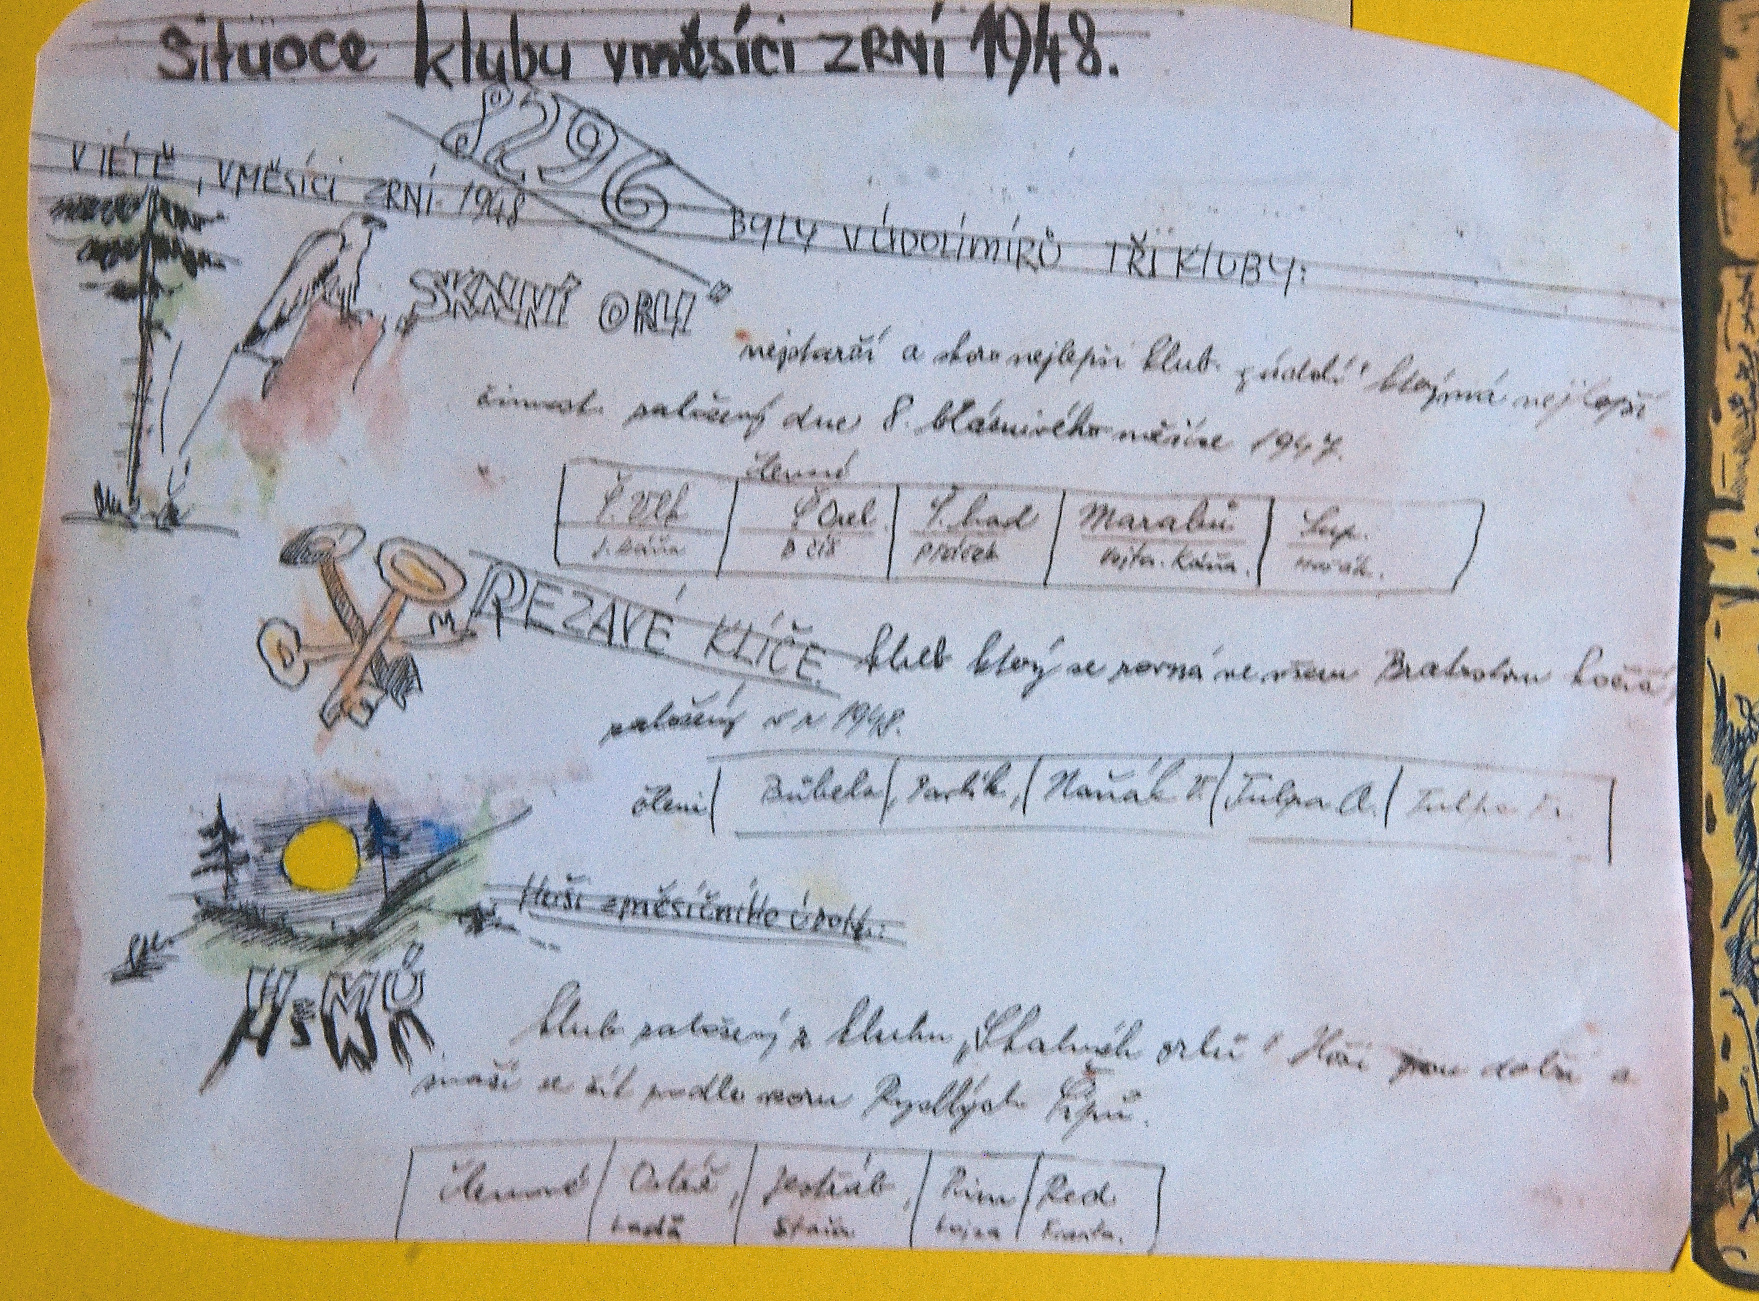 Situace klubu v měsíci ZRNÍ 1948.
8296
V LÉTĚ, V MĚSÍCI ZRNÍ 1948 BYLY V ÚDOLÍ MÍRŮ TŘI KLUBY:
SKALNÍ ORLI
nejstarší a skoro nejlepší klub který má nejlepší
činnost. založený dne 8. bláznivého měsíce 1947.
Členové
Č. Vlk Č Orel Č. had Marabu Sup.
J. Káňa Vojta. Káňa.
REZAVÉ KLÍČE. klub který se rovná ve všem Bratrstvu kočičí
založený v r 1948.
členi Bůbela, Pavlík, Haňák V. Tulpa A. Tulpa
Hoši z měsíčního údolí.
HzMÚ
klub založený z klubu „Skalních orlů" Hoši jsou dobří a
snaží se žít podle vzoru Rychlých Šípů.
Členové Jestřáb, Rim Red